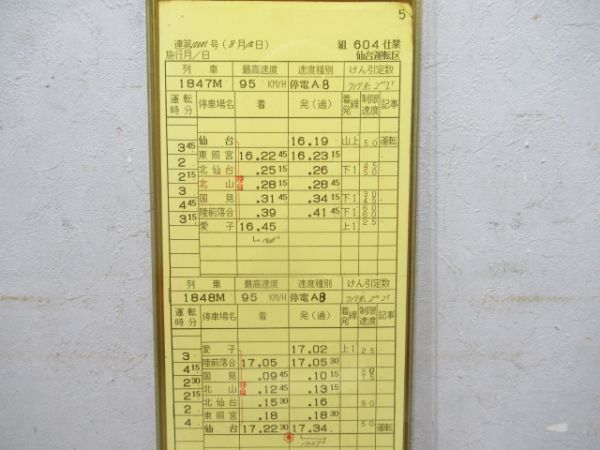 5
達第10001号(8月15日)
施行月/日
組 604 仕業
仙台運転区
列車 最高速度 速度種別 けん引定数
1847M 95 KM/H 停電A8
運転時分 停車場名 着 発(通) 着発線 制限速度 記事
仙台 16.19 山上 50 運転
3 45
東照宮 16.22 45 16.23 15
2
北仙台 .25 15 .26 下1
2 15
北山 .28 15 .28 45
3
国見 .31 45 .34 15 下1
4 45
陸前落合 .39 .41 45 下1
3 15
愛子 16.45 上1 25
列車 最高速度 速度種別 けん引定数
1848M 95 KM/H 停電A8
運転時分 停車場名 着 発(通) 着発線 制限速度 記事
愛子 17.02 上1 25
3
陸前落合 17.05 17.05 30
4 15
国見 .09 45 .10 15
2 30
北山 .12 45 .13 15
2 15
北仙台 .15 30 .16 90
2
東照宮 .18 .18 30
4
仙台 17.22 30 17.34 50 運転